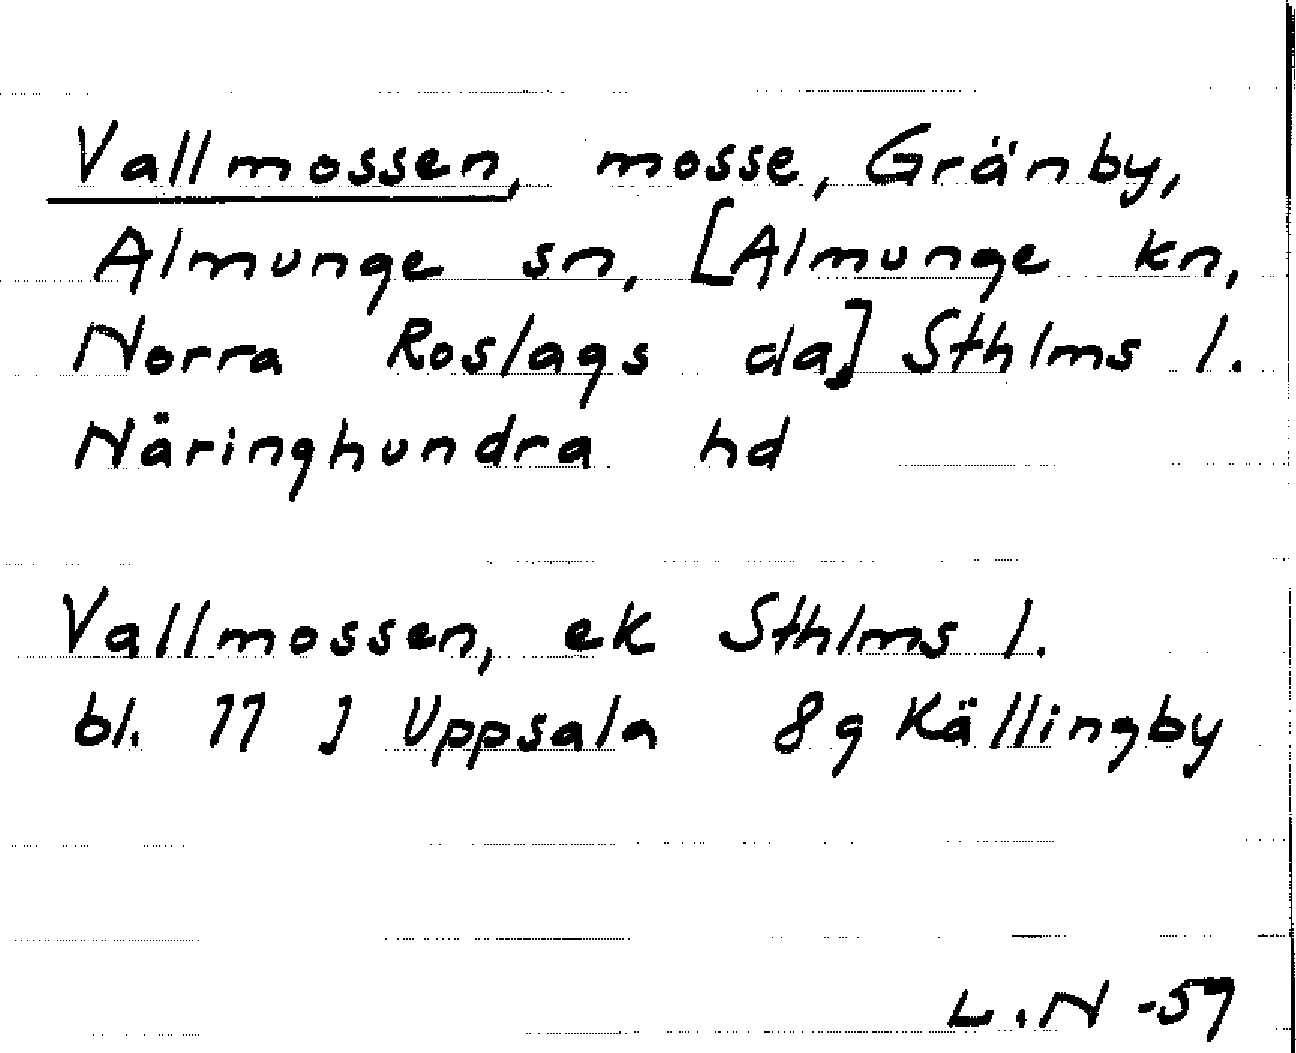 Vallmossen, mosse, Gränby,
Almunge sn, [Almunge kn,
Norra Roslags da] Sthlms l.
Näringhundra hd
Vallmossen, ek Sthlms l.
bl. 11 J Uppsala 8g Källingby
L.N -57